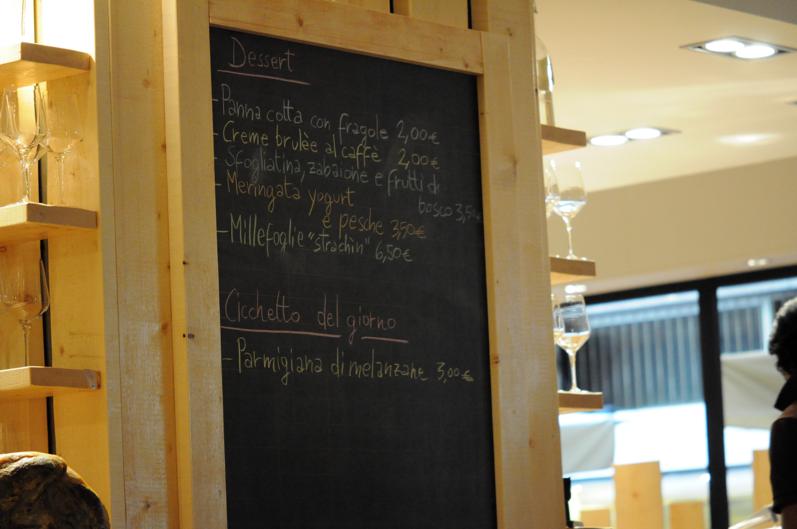 Dessert
- Panna cotta con fragole 2,00€
- Creme brulèe al caffè 2,00€
- Sfogliatina, zabaione e frutti di
bosco 3,50
- Meringata yogurt
e pesche 3,50€
- Millefoglie "strachin" 6,50€
Cicchetto del giorno
- Parmigiana di melanzane 3,00€